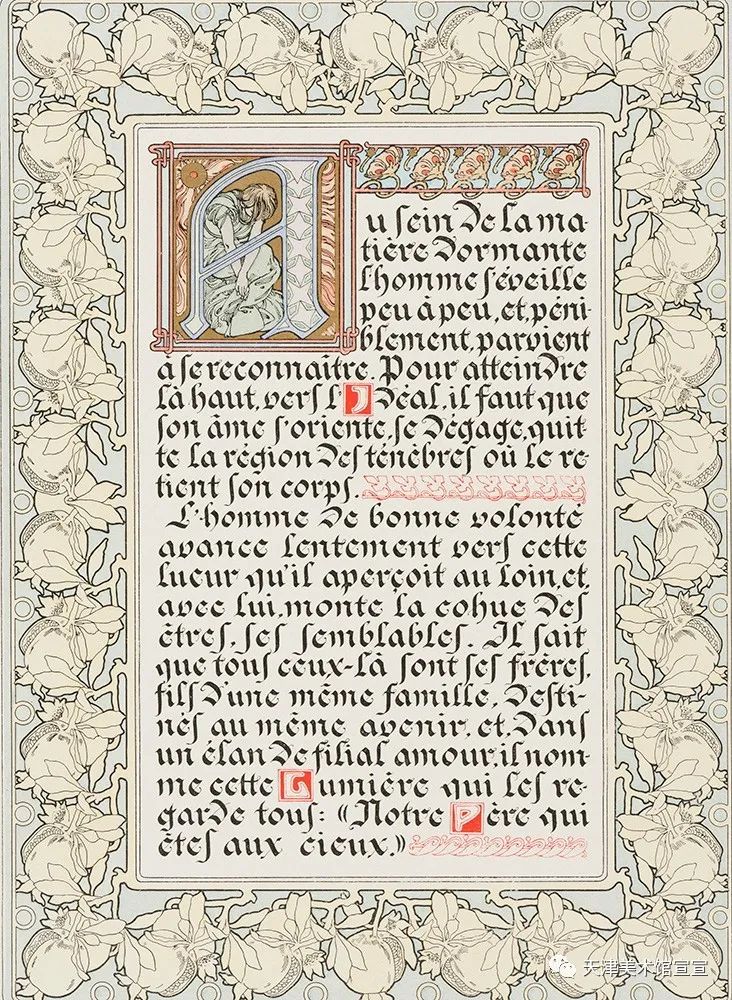 Au sein de la ma-
tière dormante
l'homme s'éveille
peu à peu, et, péni-
blement, parvient
à se reconnaître. Pour atteindre
là haut, vers l'Idéal, il faut que
son âme s'oriente, se dégage, quit-
te la région des ténèbres où le re-
tient son corps.
L'homme de bonne volonté
avance lentement vers cette
lueur qu'il aperçoit au loin, et,
avec lui, monte la cohue des
êtres, ses semblables. Il sait
que tous ceux-là sont ses frères,
fils d'une même famille, desti-
nés au même avenir, et, dans
un élan de filial amour, il nom-
me cette Lumière qui les re-
garde tous: «Notre Père qui
êtes aux cieux.»
天津美术馆宣宣